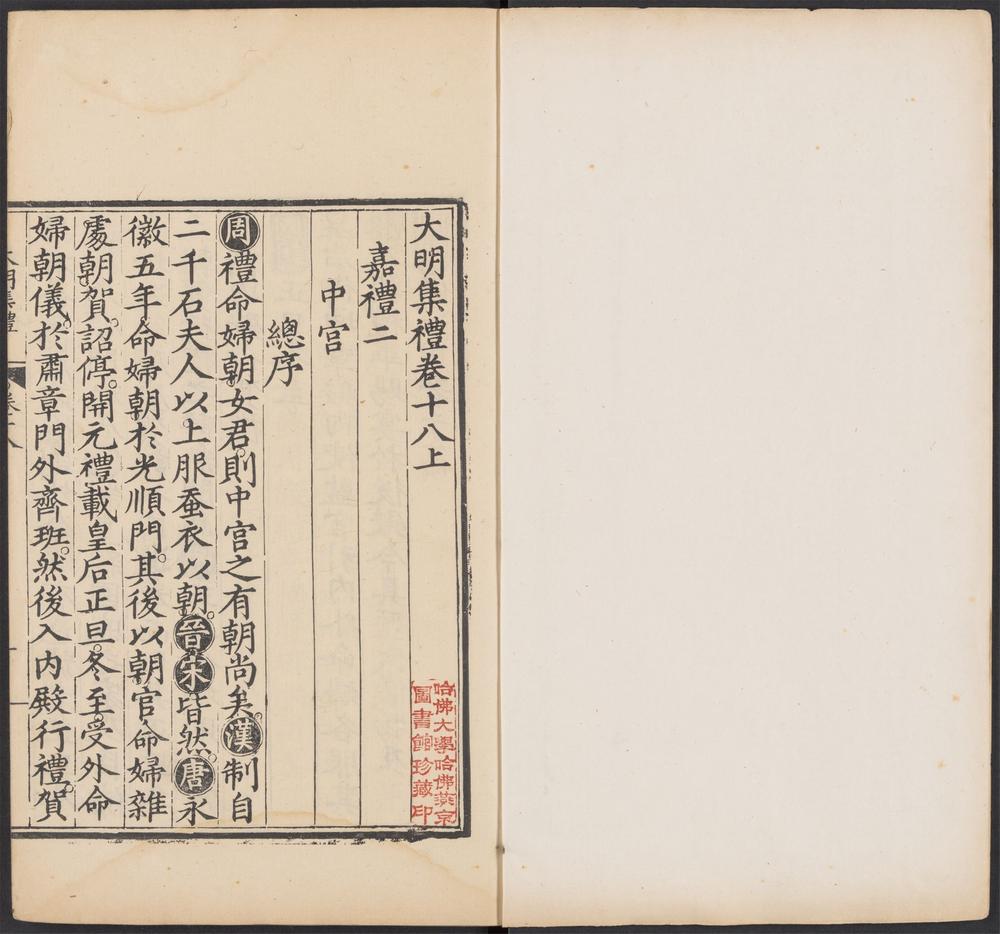 大明集禮卷十八上
嘉禮二
中宮
緫序
周禮命婦朝女君。則中宮之有朝尚矣。漢制自
二千石夫人以上服蚕衣以朝。晉宋皆然。唐永
徽五年。命婦朝於光順門。其後以朝官命婦雜
處朝賀。詔停。開元禮載皇后正旦。冬至。受外命
婦朝儀。於肅章門外齊班。然後入內殿行禮。賀
哈佛大學哈佛燕京
圖書館珍藏印